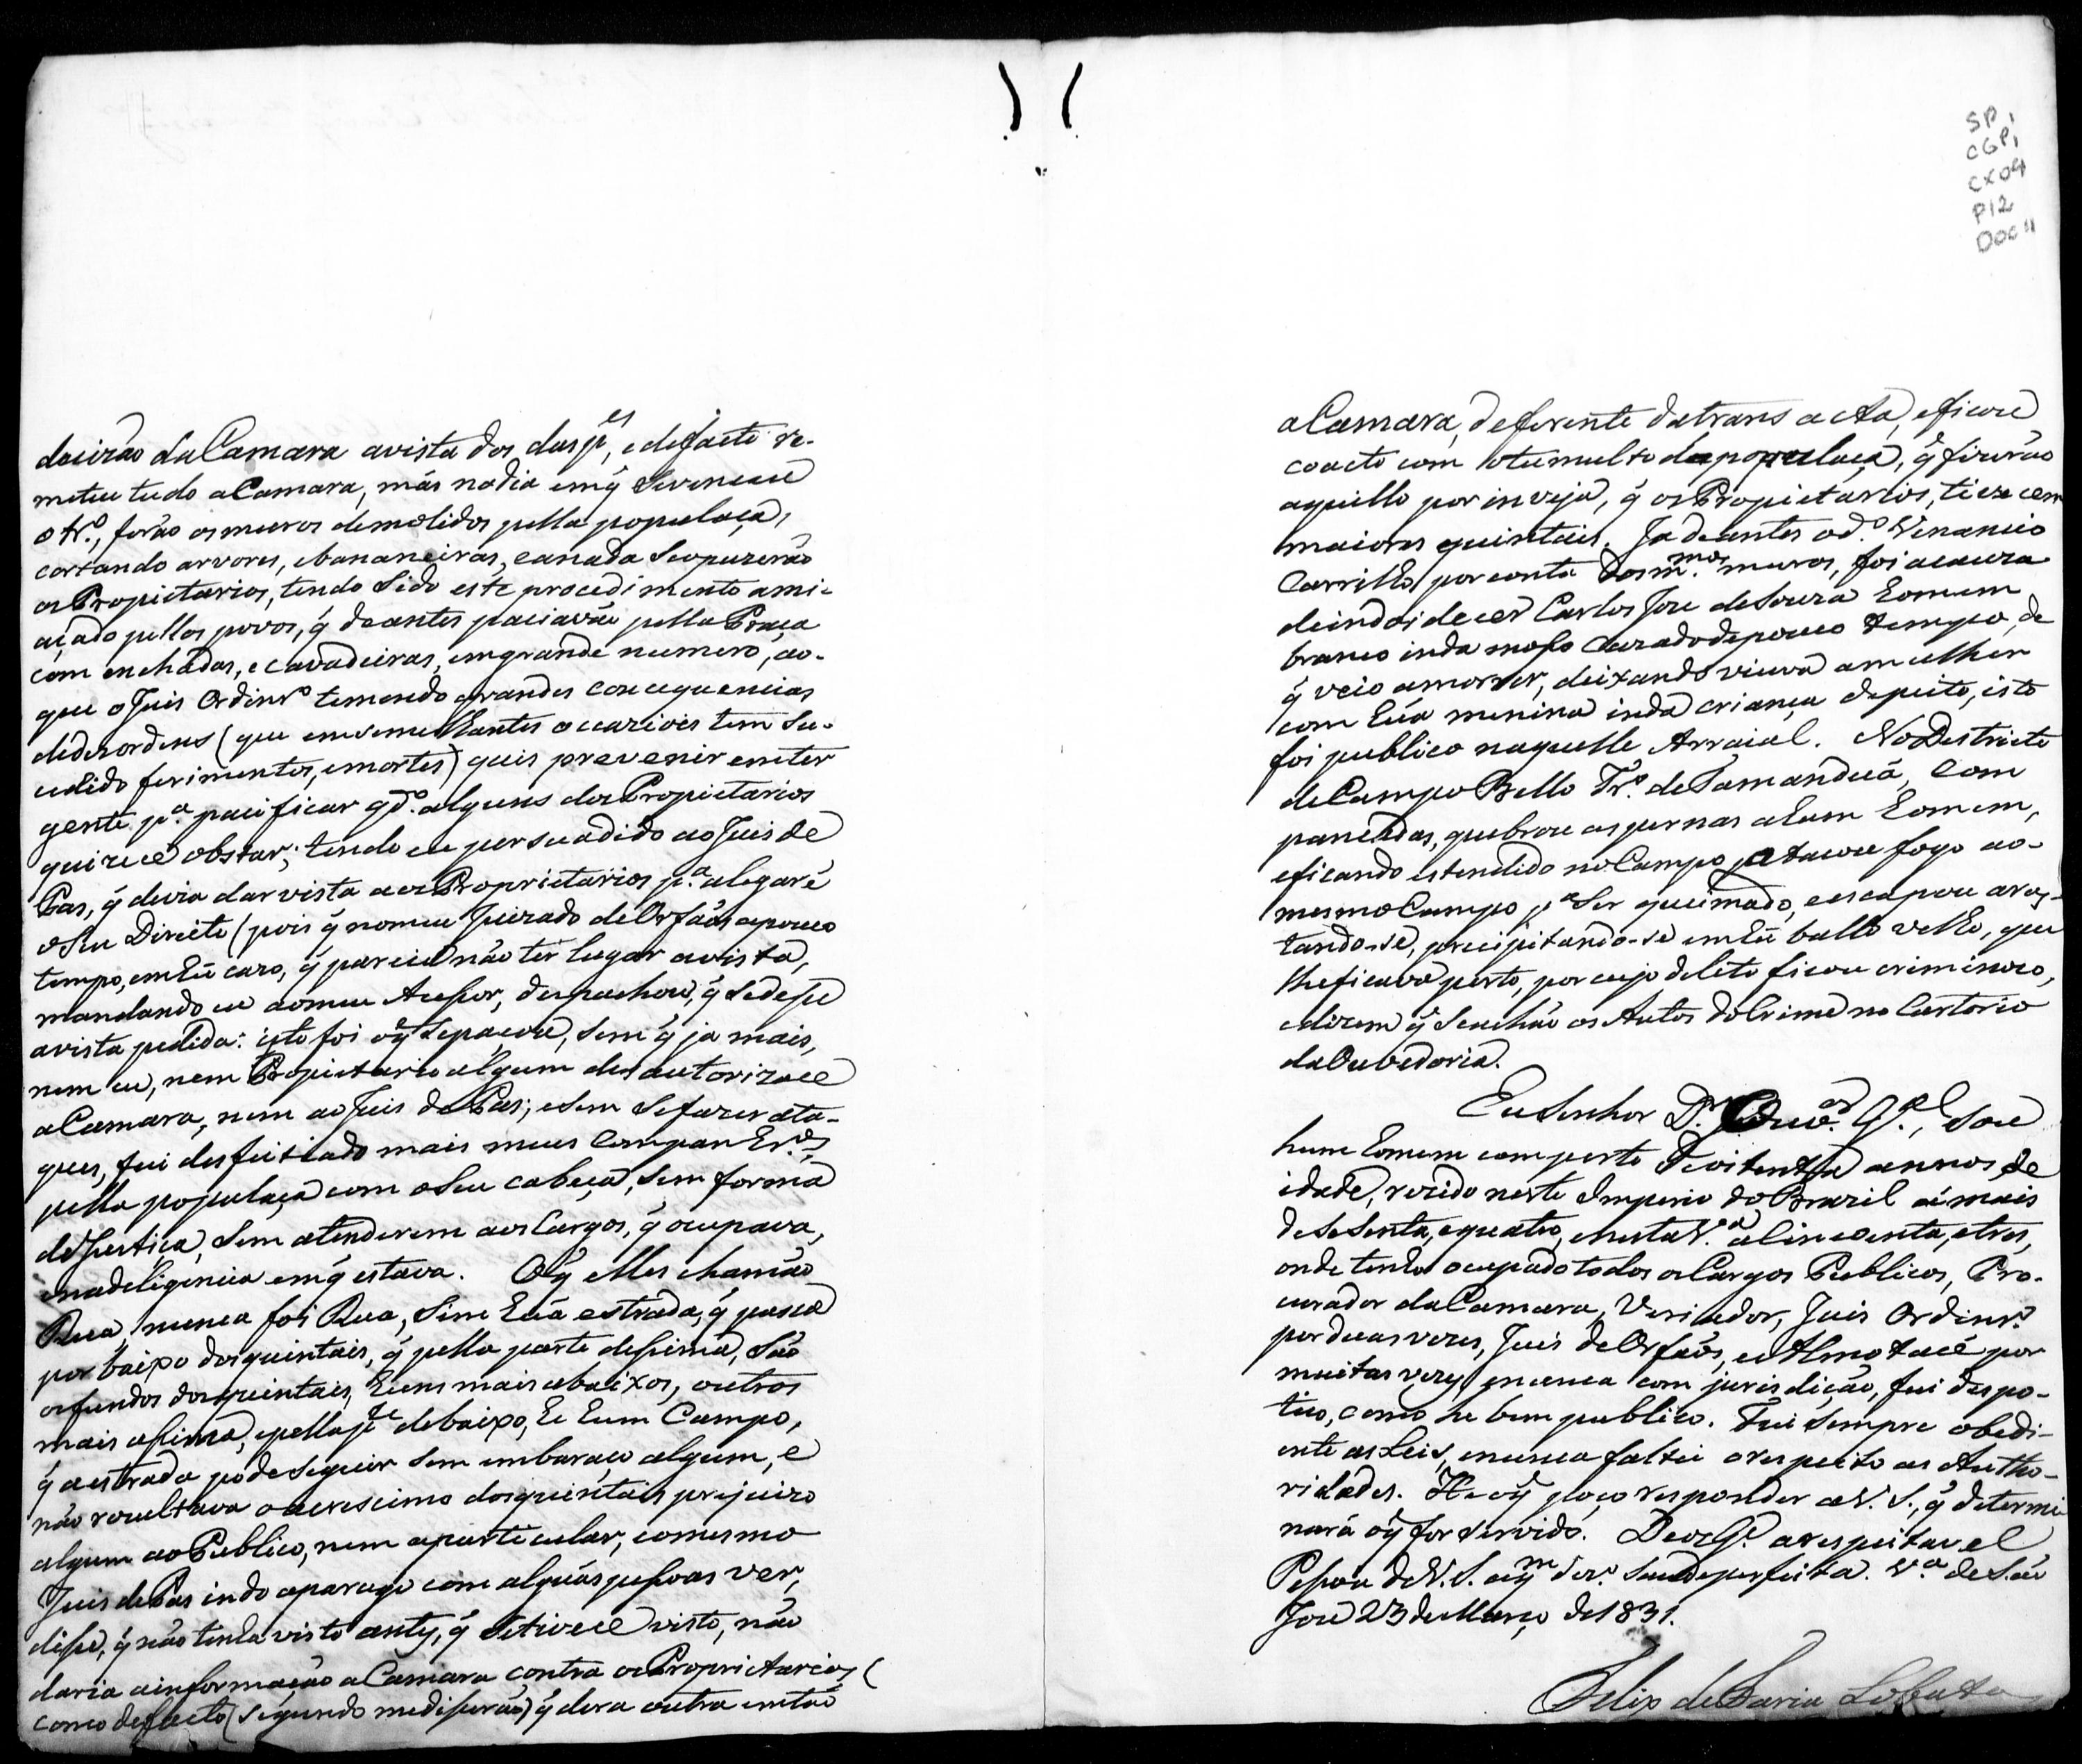 decizão da Camara avista dos das p.es, e de facto re-
meteu tudo a Camara, más no dia em q̃ se venceu
o Tr.º, forão os muros demolidos pella populaça,
cortando arvores, e bananeiras, e a nada se opuzerão
os Propietarios, tendo sido este procedimento ami-
açado pellos povos, q̃ de antes paciavão pella Praça
com enchadas, e cavadeiras, em grande numero, ao-
que o Juis Ordinr.º temendo grandes concequencias
de dezordens (que em semelhantes occaziois tem su-
cedido ferimentos, e mortes) quis prevenir em ter
gente p.ª pacificar qd.º alguns dos Propietarios
quizece obstar; tendo eu persuadido ao Juis de
Pas, q̃ devia dar vista aos Proprietarios p.ª alegarẽ
o seu Direito (pois q̃ no meu Juizado de Orfãos a pouco
tempo, em hũ cazo, q̃ parecia não ter lugar a vista,
mandando eu ao meu Acessor, despachou, q̃ se desse
a vista pedida: isto foi o q̃ se paçou, sem q̃ ja mais,
nem eu, nem Propietario algum desautorizace
a Camara, nem ao Juis de Pas; e sem se fazer ata-
ques, fui desfeitiado mais meus companhr.os
pella populaça com o seu cabeça, sem forma
de Justiça, sem atenderem aos Cargos, q̃ ocupava,
e na deligencia em q̃ estava. O q̃ elles chamão
Rua, nunca foi Rua, sim hũa estrada, q̃ passa
por baixo dos quintais, q̃ pella parte de sima, são
os fundos dos quintais, huns mais abaixos, outros
mais asima, e pella p.te de baixo, he hum Campo,
q̃ a estrada pode seguir sem embaraço algum, e
não rezultava o acrescimo dos quintais prejuizo
algum ao Publico, nem a particular, e o mesmo
Juis de Pas indo a paragẽ com algũas pessoas ver,
disse, q̃ não tinha visto antes, q̃ se tivece visto, não
daria a informação a Camara contra os Proprietarios (
como de facto (segundo me disserão) q̃ dera outra então
SP,
CGP,
CX 04
P12
DOC 11
a Camara, deferente da transacta, e ficou
coacto com o tumulto da populaça, q̃ fizerão
aquillo por inveja, q̃ os Propietarios, tivecem
maiores quintais. Ja de antes o d.º Venancio
Carrilho por conta dos m.mos muros, foi a cauza
de indoidecer Carlos Joze de Souza homem
branco inda moço cazado de pouco tempo, de
q̃ veio a morrer, deixando viuva a mulher
com hũa menina inda criança de peito, isto
foi publico naquelle Arraial. No Destricto
de Campo Bello Tr.º de Tamanduá, com
pancadas, quebrou as pernas a hum homem,
e ficando estendido no Campo, atacou fogo ao-
mesmo Campo p.ª ser queimado, e escapou aras-
tando-se, precipitando-se em hũ vallo velho, que
lhe ficava perto, por cujo deleto ficou criminozo,
e dizem q̃ se achão os Autos do Crime no Cartorio
da Ouvedoria.
Eu Senhor D.r Ouv.or G.el, sou
hum homem com perto de oitenta annos, de
idade, rezido neste Imperio do Brazil a mais
de sesenta, e quatro, e nesta V.ª a Cincoenta, e tres,
onde tenho ocupado todos os Cargos Publicos, Pro-
curador da Camara, Veriador, Juis Ordinr.º
por duas vezes, Juis de Orfãos, e Almotacé por
muitas vezes, e nunca com jurisdição, fui despo-
tico, como he bem publico. Fui sempre obedi-
ente as Leis, e nunca faltei o respeito as Autho-
ridades. He o q̃ poço responder a V. S., q̃ determi
nará o q̃ for servido. Deos G.e a respeitavel
Pessoa de V. S. a q.m dez.º saude perfeita. V.ª de São
Joze 23 de Março de 1831.
Felis de Faria Lobato